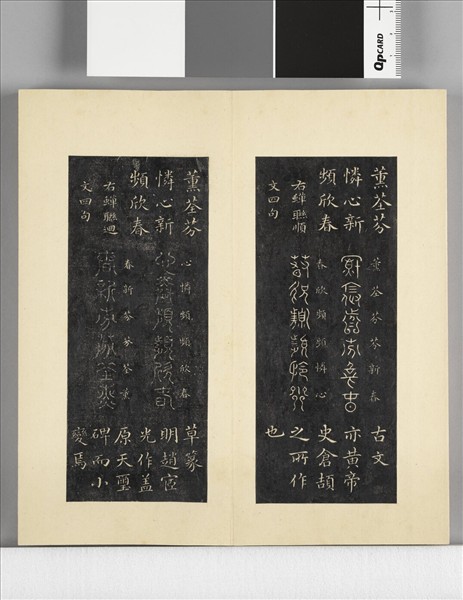 QPCARD
薰荃芬
憐心新
頻欣春
右蟬聯順
文四句
薰荃芬芬新春
春欣頻頻憐心
古文
亦黃帝
史倉頡
之所作
也
薰荃芬
憐心新
頻欣春
右蟬聯迴
文四句
心憐頻頻欣春
春新芬芬荃薰
草篆
明趙宧
光作蓋
原天璽
碑而小
變焉